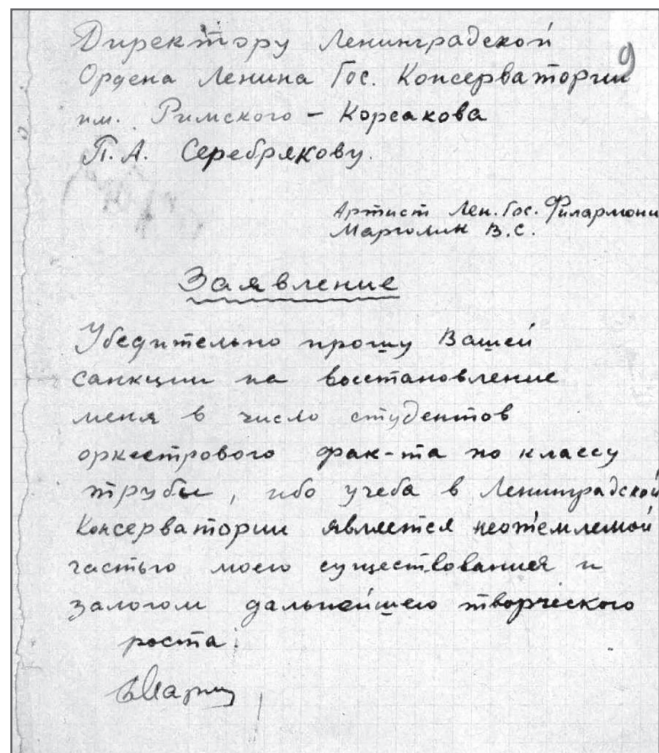 Директору Ленинградской
9
Ордена Ленина Гос. Консерватории
им. Римского – Корсакова
П.А. Серебрякову.
Артист Лен. Гос. Филармони
Марголин В.С.
Заявление
Убедительно прошу Вашей
санкции на восстановление
меня в число студентов
оркестрового фак-та по классу
трубы, ибо учеба в Ленинградской
Консерватории является неотъемлемой
частью моего существования и
залогом дальнейшего творческого
роста.